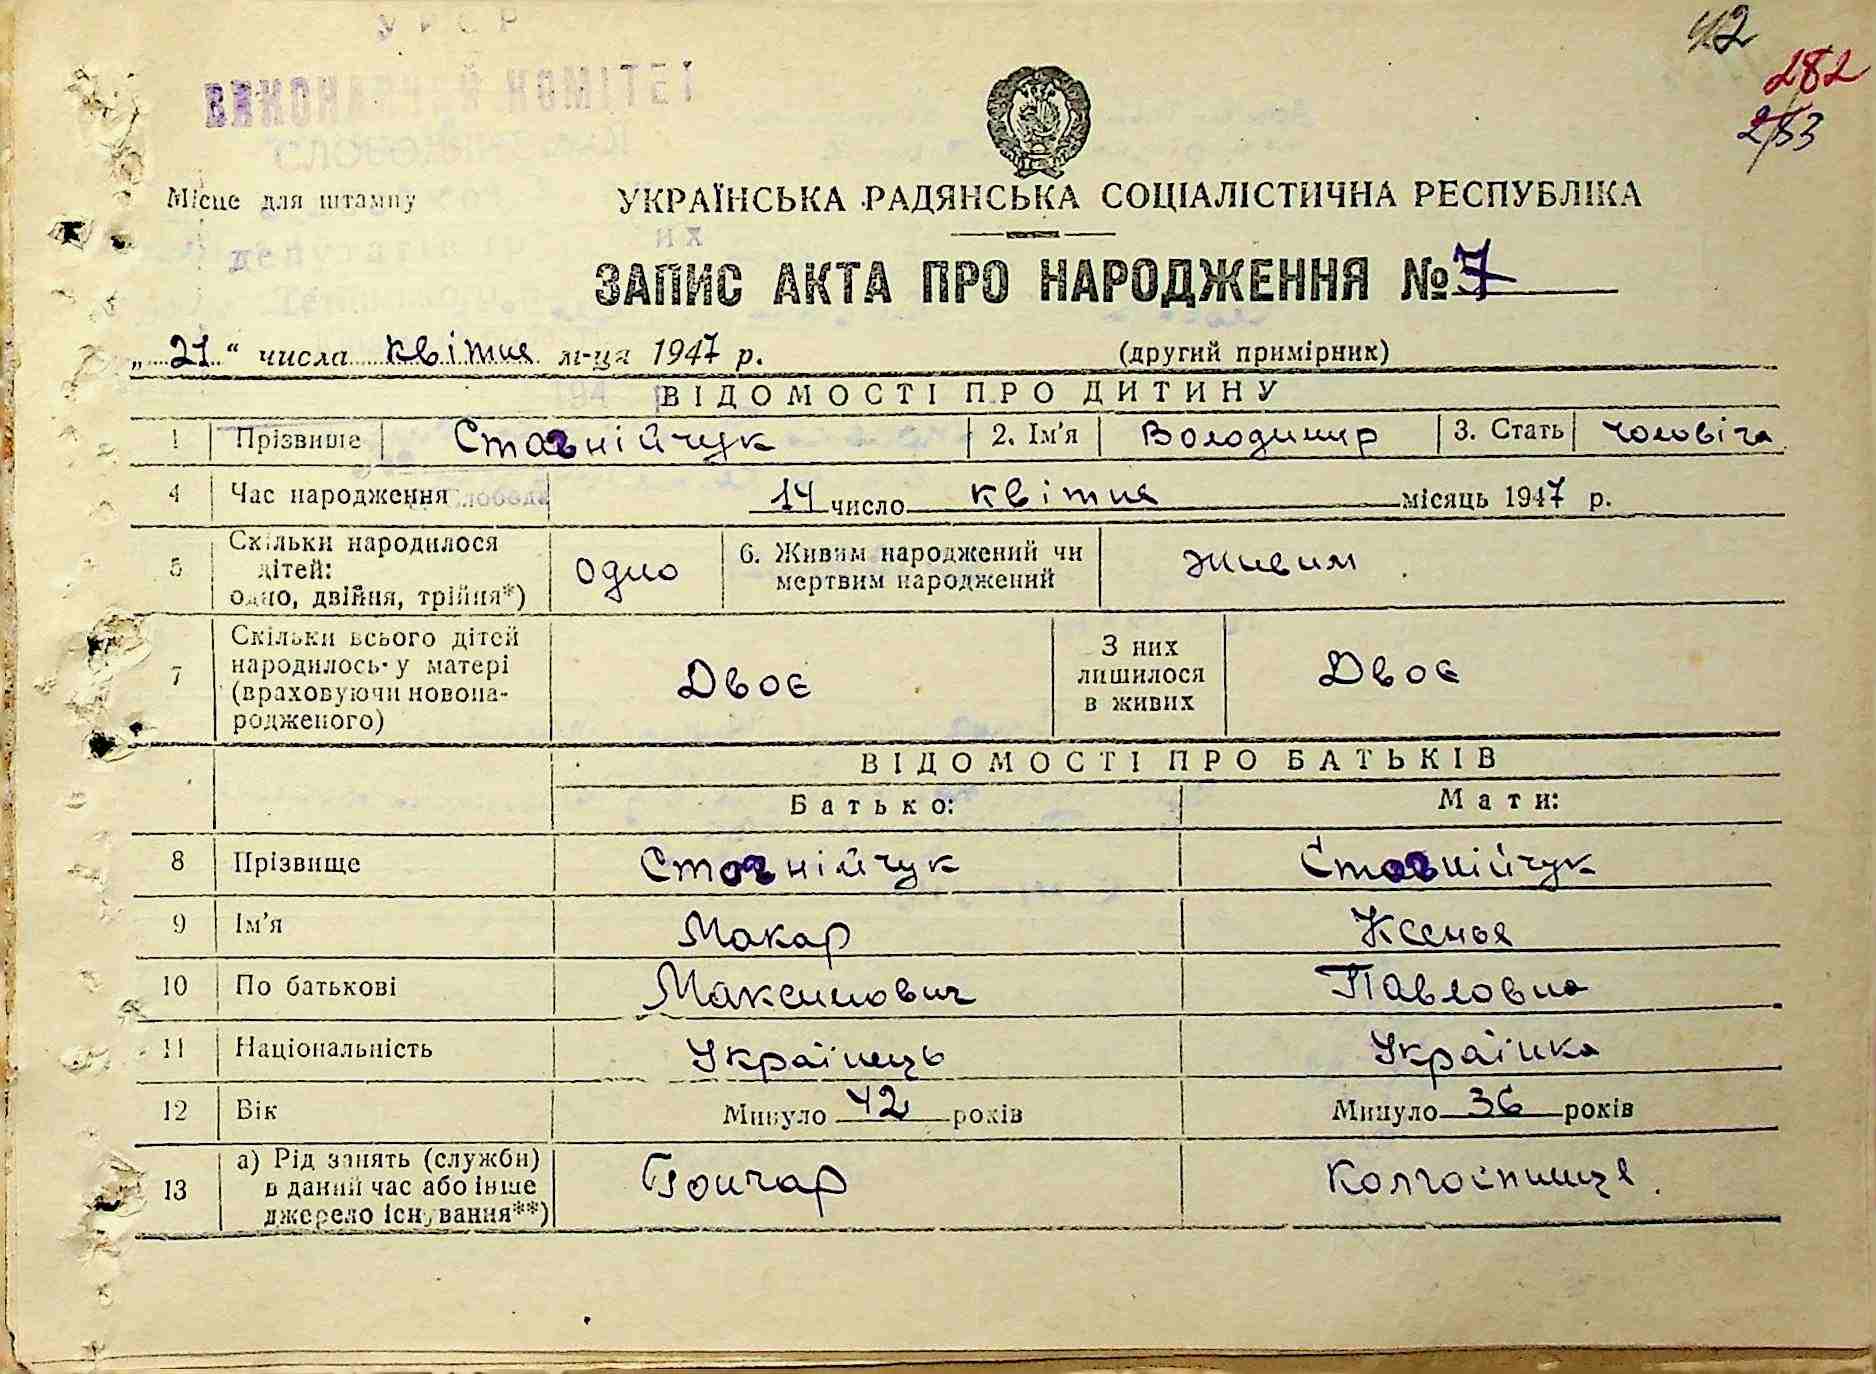 УРСР
ВИКОНАВЧИЙ КОМІТЕТ
42
282
253
Місце для штампу
УКРАЇНСЬКА РАДЯНСЬКА СОЦІАЛІСТИЧНА РЕСПУБЛІКА
ЗАПИС АКТА ПРО НАРОДЖЕННЯ № 7
„21“ числа квітня м-ця 1947 р. (другий примірник)
ВІДОМОСТІ ПРО ДИТИНУ
1 Прізвище Стогнійчук 2. Ім'я Володимир 3. Стать чоловіча
4 Час народження 14 число квітня місяць 1947 р.
5 Скільки народилося дітей: одно, двійня, трійня*) одно 6. Живим народжений чи мертвим народжений живим
7 Скільки всього дітей народилось у матері (враховуючи новонародженого) Двоє З них лишилося в живих Двоє
ВІДОМОСТІ ПРО БАТЬКІВ
Батько: Мати:
8 Прізвище Стогнійчук Стогнійчук
9 Ім'я Макар Ксенья
10 По батькові Максимович Павловна
11 Національність Українець Українка
12 Вік Минуло 42 років Минуло 36 років
13 а) Рід занять (служби) в даний час або інше джерело існування**) Гончар Колгоспниця.